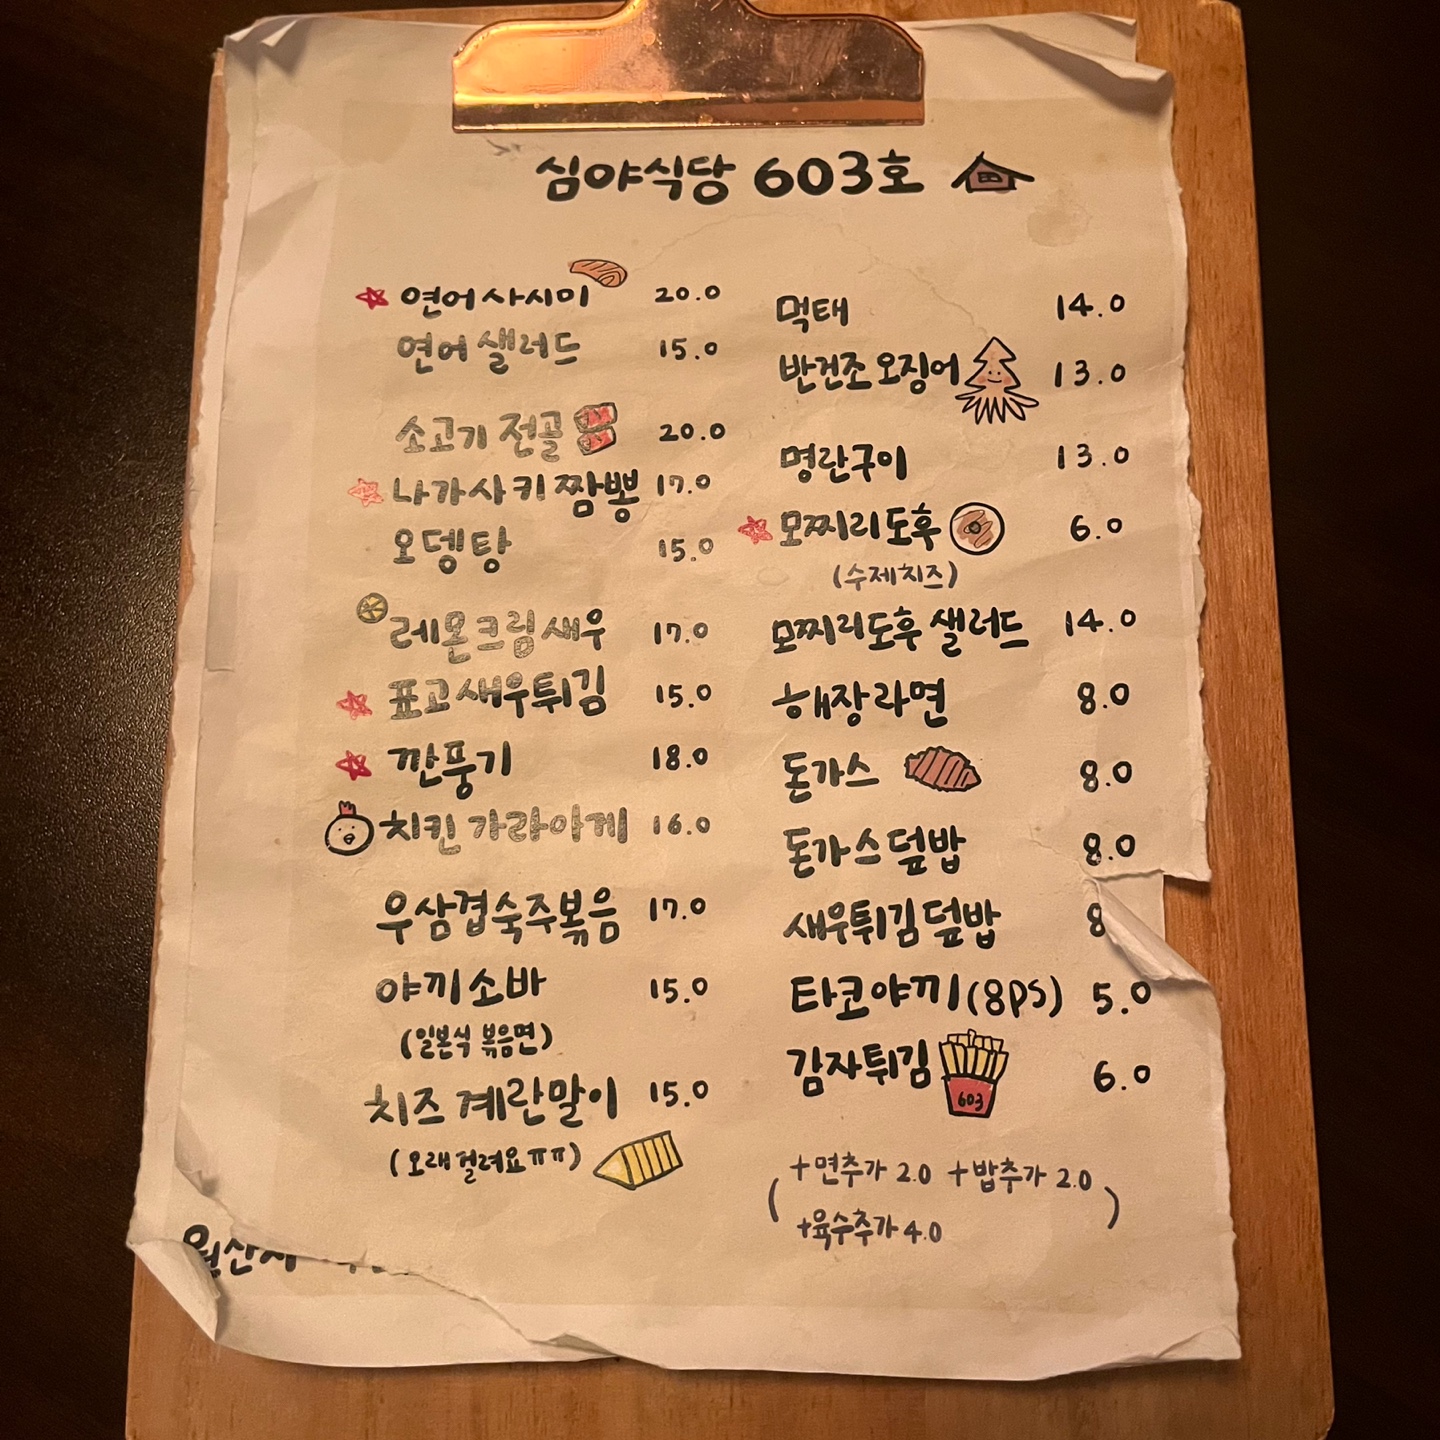 심야식당 603호
연어사시미 20.0
연어 샐러드 15.0
소고기 전골 20.0
나가사키짬뽕 17.0
오뎅탕 15.0
레몬크림새우 17.0
표고새우튀김 15.0
깐풍기 18.0
치킨 가라아게 16.0
우삼겹숙주볶음 17.0
야끼소바 15.0
(일본식 볶음면)
치즈 계란말이 15.0
(오래걸려요ㅠㅠ)
먹태 14.0
반건조 오징어 13.0
명란구이 13.0
모찌리도후 6.0
(수제치즈)
모찌리도후 샐러드 14.0
해장라면 8.0
돈가스 8.0
돈가스덮밥 8.0
새우튀김덮밥 8
타코야끼(8ps) 5.0
감자튀김 6.0
603
(+면추가 2.0 +밥추가 2.0
+육수추가 4.0)